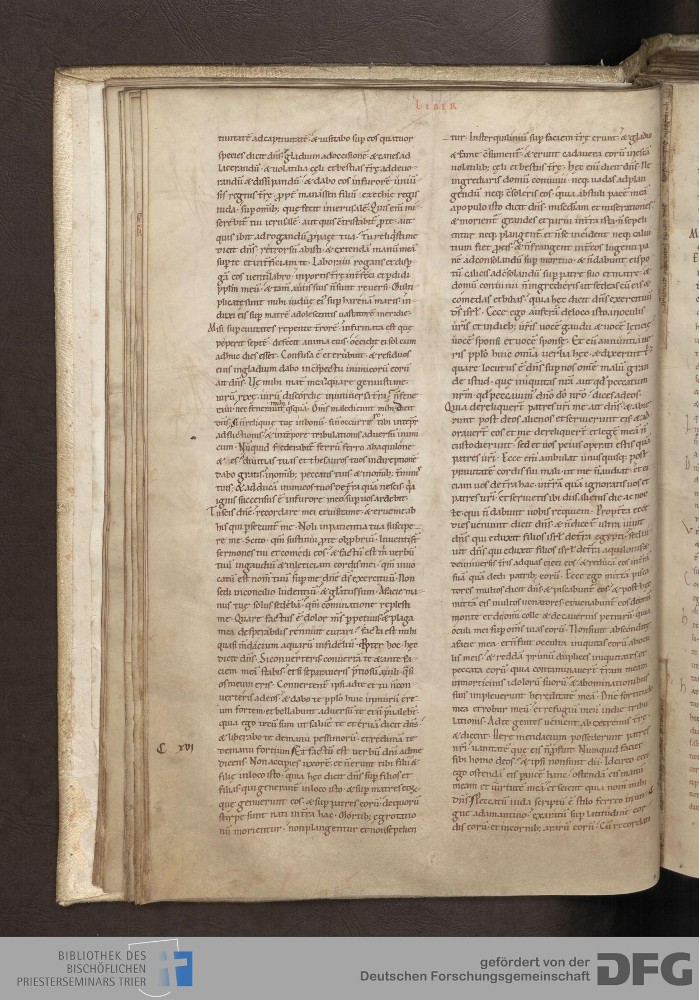 LIBER
tiuitatē ad captiuitatē · & uisitabo sup eos quatuor
species dicit dn̄s · gladium ad occisionē & canes ad
lacerandū · & uolatilia cęli & bestias tr̄ę ad deuo
randū & dissipandū · & dabo eos in furorē uniū
sis regnis tr̄ę · ppt̄ manassen filiū ezechię regis
iuda · sup omib; quę fecit in ierusalē · Quis enī mi
sereb̄it̄ tui ierusalē · aut quis c̄tristabit̄ p te · aut
quis ibit ad rogandū p pace tua · Tu reliq̄sti me
dicit dn̄s · retrorsū abisti · & extendā manū meā
sup te et interficiam te · Laboraui rogans et disp
gā eos uentilabro in portis tr̄ę · interfeci et pdidi
pplm̄ meū · & tam̄ a uiis suis n̄ sunt reuersi · Multi
plicate sunt mihi uiduę ei sup harenā maris in
duxi eis sup matrē adolescentis uastatorē meridie ·
Misi sup ciuitates repente t̄rorē · infirmata est que
peperit septē · defecit anima eius · occidit ei sol cum
adhuc dies esset · Confusa ē et erubuit · & residuos
eius in gladium dabo in c̄spectu inimicorū eorū
ait dn̄s · Vę mihi mat̄ mea quare genuisti me
uirū rixę · uirū discordię in uniuersa tr̄a · n̄ fene
raui nec feneraui m̄ qsquā · Om̄s maledicunt mihi dicit
dn̄s · Si reliquię tuę in bonū · si n̄ occurri tibi in tēpr̄
adflictionis & in tēpore tribulationis aduersū inimi
cum · Nūquid federabit̄ ferrū ferro ab aquilone
& ęs · diuitias tuas et thesauros tuos in direptionē
dabo gratis in omib; peccatis tuis & in omib; t̄minis
tuis · & adducā inimicos tuos de t̄ra quā nescis · qa
ignis succensus ē in furore meo · sup uos ardebit ·
Tu scis dn̄e · recordare mei et uisita me · & tuere me ab
his qui psecunt̄ me · Noli in patientia tua suscipe
re me · Scito qm̄ sustinui p te obpbriū · Inuenti st̄
sermones tui et comedi eos · & factū est m̄ uerbū
tuū in gaudiū & in leticiam cordis mei · qm̄ inuo
catū est nom̄ tuū sup me dn̄e ds̄ exercituū · Non
sedi in concilio ludentiū · & gl̄atus sum · A facie ma
nus tuę solus sedebā · qm̄ cominatione replesti
me · Quare factus ē dolor m̄s ppetuus & plaga
mea desperabilis rennuit curari · facta est mihi
quasi mdacium aquarū infideliū · Ppter hoc hęc
dicit dn̄s · Si conuerteris conuertā te · & ante fa
ciem meā stabis · et si separaueris p̄tiosū a uili · q̄si
os meum eris · Conuertent̄ ipsi ad te et tu n̄ con
uerteris ad eos · & dabo te pplo huic in murū ęre
um fortem · et bellabunt aduersū te et n̄ p̄ualebt̄ ·
quia ego tecū sum ut saluē te et eruā te dicit dn̄s ·
& liberabo te de manu pessimorū · et redimā te
C XVI de manu fortium · Et factū est uerbū dn̄i ad me
dicens · Non accipies uxorē · et n̄ erunt tibi filii &
filię in loco isto · quia hęc dicit dn̄s sup filios et
filias qui generant̄ in loco isto · & sup matres eorꝫ
quę genuerunt eos · & sup patres eorū · de quorū
stirpe sunt nati in tr̄a hac · Mortib; ęgrotatio
nū morientur · non plangentur et non sepelien
tur · In sterquiliniū sup faciem tr̄ę erunt · & gladio
& fame c̄sument̄ · & erunt cadauera eorū in escā
uolatilib; cęli et bestiis tr̄ę · Hęc enī dicit dn̄s · Ne
ingrediaris domū conuiuii neq; uadas ad plan
gendū neq; c̄soleris eos · quia abstuli pacē meā
a populo isto dicit dn̄s · misc̄diam et miserationes ·
& morient̄ grandes et parui in tr̄a ista · n̄ sepeli
entur neq; plangent̄ · et n̄ se incident neq; calui
tium fiet p eis · & n̄ frangent int̄ eos lugenti pa
nē ad consolandū sup mortuo · & n̄ dabunt eis po
tū calicis ad c̄solandū sup patre suo et matre · &
domū conuiuii n̄ ingrediaris ut sedeas cū eis &
comedas et bibas · quia hęc dicit dn̄s exercituū
ds̄ isrl̄ · Ecce ego auferā de loco isto in oculis
ur̄is et in dieb; ur̄is uocē gaudii & uocē leticię
uocē sponsi et uocē sponsę · Et cū annuntiaue
ris pplo huic omia uerba hęc · & dixerint t̄
quare locutus ē dn̄s sup nos om̄e malū gran
de istud · quę iniquitas nr̄a aut qd peccatum
nr̄m · qd peccauim̄ dn̄o do nr̄o · dices ad eos ·
Quia dereliquert̄ patres ur̄i me ait dn̄s · & abie
runt post deos alienos et seruierunt eis & ad
orauert̄ eos · et me dereliquert̄ et legē meā n̄
custodierunt · sed et uos peius operati estis quā
patres ur̄i · Ecce enī ambulat unusquisq; post
prauitatē cordis sui mali · ut me n̄ audiat · et ei
ciam uos de tr̄a hac · in tr̄ā quā ignoratis uos et
patres ur̄i · et seruietis ibi diis alienis die ac noc
te · qui n̄ dabunt uobis requiem · Propt̄ea ecce
dies ueniunt dicit dn̄s · & n̄ dicet̄ ultra · uiuit
dn̄s qui eduxit filios isrl̄ de tr̄a egypti · sed ui
uit dn̄s qui eduxit filios isrl̄ de tr̄a aquilonis &
de uniuersis tr̄is ad quas eieci eos · & reducā eos in tr̄ā
suā quā dedi patrib; eorū · Ecce ego mittā pisca
tores multos dicit dn̄s · & piscabunt eos · & post hęc
mittā eis multos uenatores · et uenabunt̄ eos de omi
monte et de om̄i colle · & de cauernis petrarū · quia
oculi mei sup om̄s uias eorū · Non sunt abscondite
a facie mea · et n̄ fuit occulta iniquitas eorū ab ocu
lis meis · & reddā primū duplices iniquitates et
peccata eorū · quia contaminauert̄ tr̄am meam
in morticinis idolorū suorū · & abominationibus
suis impleuerunt hereditatē meā · Dn̄e fortitudo
mea et robur meū · et refugiū meū in die tribu
lationis · Ad te gentes uenient ab extremis tr̄ę ·
& dicent · Vere mendacium possederunt patres
nr̄i · uanitatē quę eis n̄ pfuit · Numquid faciet
sibi homo deos · & ipsi non sunt dii · Idcirco ecce
ego ostendā eis p uicē hanc · ostendā eis manū
meam et uirtutē meā · et scient quia nom̄ mihi
dn̄s · Peccatū iuda scriptū ē stilo ferreo in un
gue adamantino · exaratū sup latitudinē cor
dis eorū · et in cornib; ararū eorū · Cū recordati
BIBLIOTHEK DES
BISCHÖFLICHEN
PRIESTERSEMINARS TRIER
gefördert von der
Deutschen Forschungsgemeinschaft
DFG